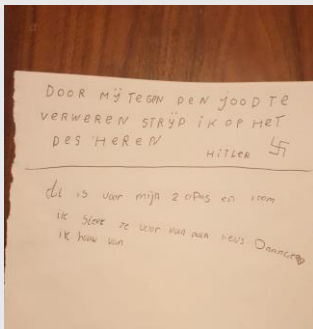 DOOR MIJ TEGEN DEN JOOD TE
VERWEREN STRIJD IK OP HET
DES HEREN
HITLER
dit is voor mijn 2 opas en room
ik steek ze voor van aan
ik hauw van